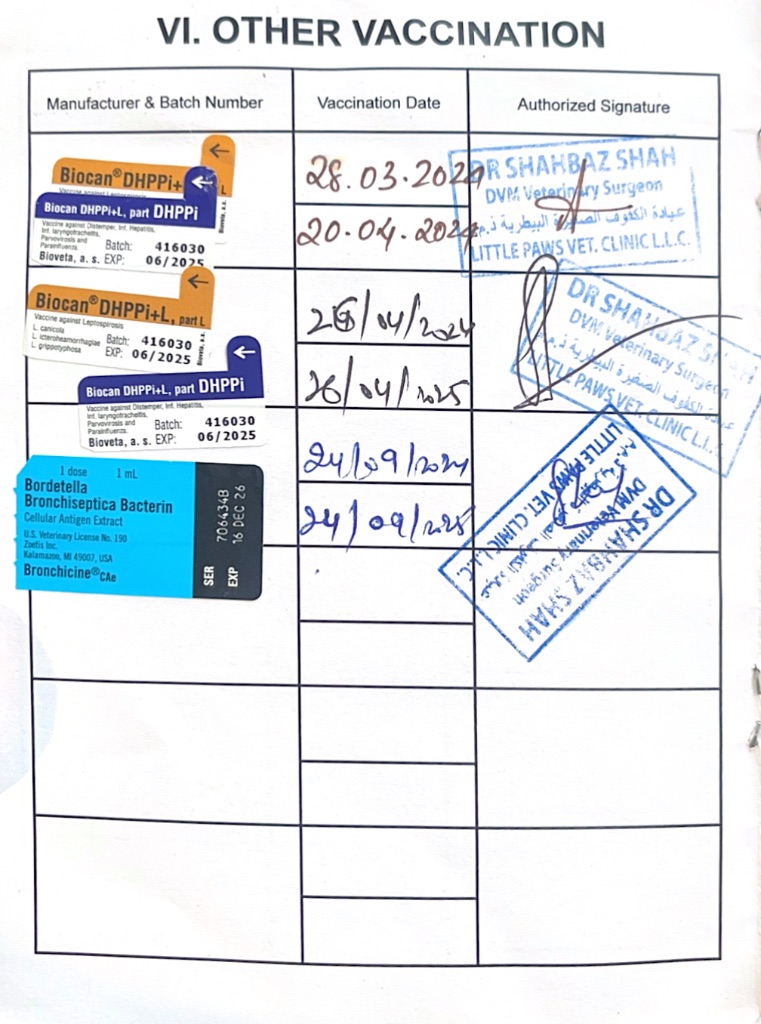 VI. OTHER VACCINATION
Manufacturer & Batch Number
Vaccination Date
Authorized Signature
Biocan® DHPPi+ L
Biocan DHPPi+L, part DHPPi
Vaccine against Distemper, Inf. Hepatitis,
Inf. laryngotracheitis,
Parvovirosis and
Parainfluenza.
Batch: 416030
Bioveta, a. s. EXP: 06/2025
Bioveta, a.s.
28.03.2024
20.04.2024
DR SHAHBAZ SHAH
DVM Veterinary Surgeon
عيادة الكفوف الصغيرة البيطرية ذ.م.م
LITTLE PAWS VET. CLINIC L.L.C.
Biocan® DHPPi+L, part L
Vaccine against Leptospirosis
L. canicola
L. icterohaemorrhagiae
L. grippotyphosa
Batch: 416030
EXP: 06/2025
Bioveta, a.s.
Biocan DHPPi+L, part DHPPi
Vaccine against Distemper, Inf. Hepatitis,
Inf. laryngotracheitis,
Parvovirosis and
Parainfluenza.
Batch: 416030
Bioveta, a. s. EXP: 06/2025
26/04/2024
26/04/2025
DR SHAHBAZ SHAH
DVM Veterinary Surgeon
عيادة الكفوف الصغيرة البيطرية ذ.م.م
LITTLE PAWS VET. CLINIC L.L.C.
1 dose 1 mL
Bordetella
Bronchiseptica Bacterin
Cellular Antigen Extract
U.S. Veterinary License No. 190
Zoetis Inc.
Kalamazoo, MI 49007, USA
Bronchicine® CAe
SER 706434B
EXP 16 DEC 26
24/09/2024
24/09/2025
DR SHAHBAZ SHAH
DVM Veterinary Surgeon
LITTLE PAWS VET. CLINIC L.L.C.